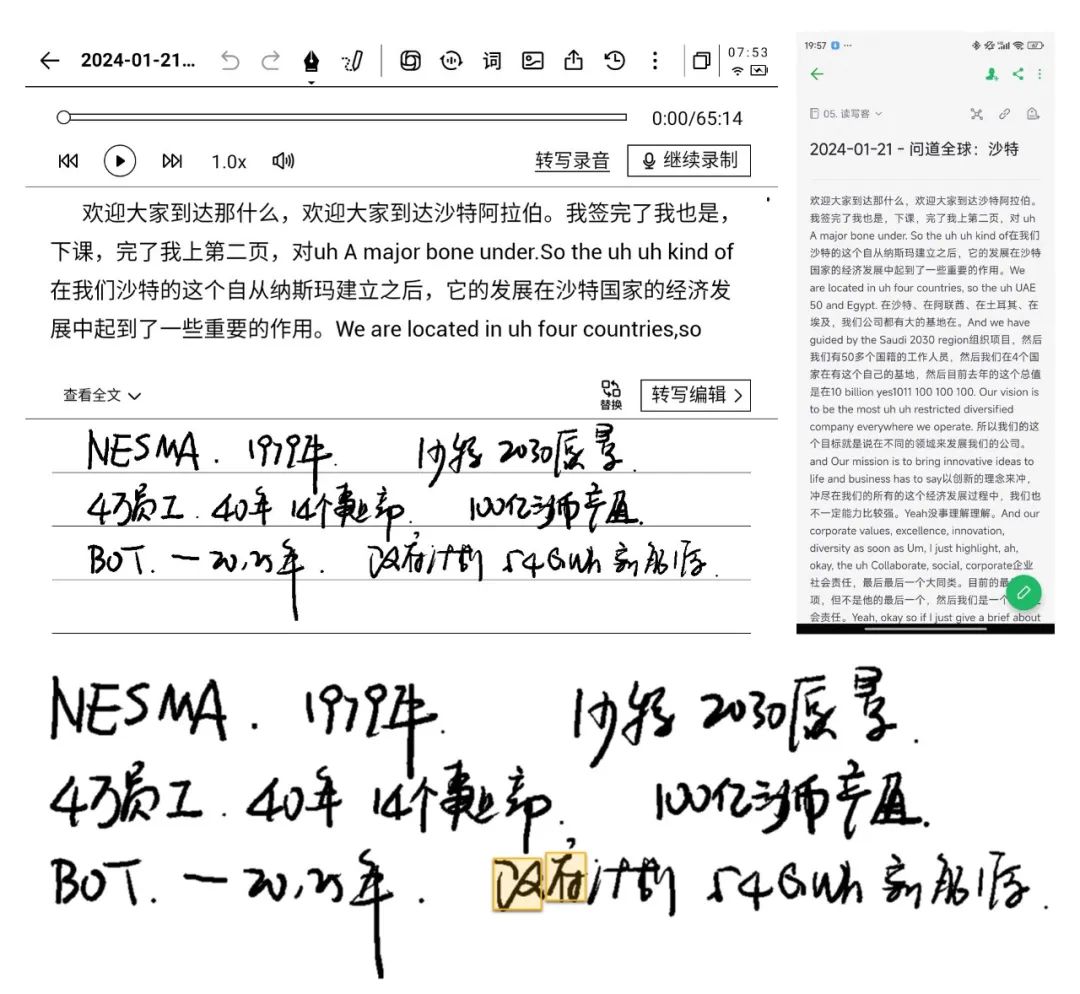 2024-01-21... 词 07:53
0:00/65:14
1.0x 转写录音 继续录制
欢迎大家到达那什么，欢迎大家到达沙特阿拉伯。我签完了我也是，
下课，完了我上第二页，对uh A major bone under.So the uh uh kind of
在我们沙特的这个自从纳斯玛建立之后，它的发展在沙特国家的经济发
展中起到了一些重要的作用。We are located in uh four countries,so
查看全文 替换 转写编辑
NESMA. 1979年. 沙特 2030愿景.
4万员工. 40年 14个事业部. 100亿沙币产值.
BOT. 一20,25年. 政府计划 54GWh 新能源.
19:57
05. 读写客
2024-01-21 – 问道全球：沙特
欢迎大家到达那什么，欢迎大家到达沙特阿拉伯。
我签完了我也是，下课，完了我上第二页，对 uh
A major bone under. So the uh uh kind of在我们
沙特的这个自从纳斯玛建立之后，它的发展在沙特
国家的经济发展中起到了一些重要的作用。We
are located in uh four countries, so the uh UAE
50 and Egypt. 在沙特、在阿联酋、在土耳其、在
埃及，我们公司都有大的基地在。And we have
guided by the Saudi 2030 region组织项目，然后
我们有50多个国籍的工作人员，然后我们在4个国
家在有这个自己的基地，然后目前去年的这个总值
是在10 billion yes1011 100 100 100. Our vision is
to be the most uh uh restricted diversified
company everywhere we operate. 所以我们的这
个目标就是说在不同的领域来发展我们的公司。
and Our mission is to bring innovative ideas to
life and business has to say以创新的理念来冲，
冲尽在我们的所有的这个经济发展过程中，我们也
不一定能力比较强。Yeah没事理解理解。And our
corporate values, excellence, innovation,
diversity as soon as Um, I just highlight, ah,
okay, the uh Collaborate, social, corporate企业
社会责任，最后最后一个大同类。目前的最
项，但不是他的最后一个，然后我们是一个
会责任。Yeah, okay so if I just give a brief about
NESMA. 1979年. 沙特 2030愿景.
4万员工. 40年 14个事业部. 100亿沙币产值.
BOT. 一20,25年. 政府计划 54GWh 新能源.